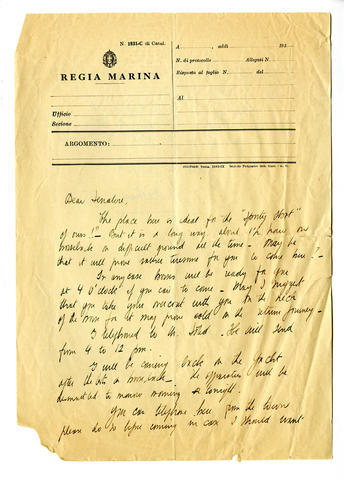 N. 1831-C di Catal.
REGIA MARINA
Ufficio
Sezione
A , addì 193
N. di protocollo Allegati N.
Risposta al foglio N. del
Al
ARGOMENTO:
Dear Senatore,
The place here is ideal for the
of ours! But it is a long way, about 1½ hours on
horseback on difficult ground all the time - May be
that it will prove rather tiresome for you to come here?
In any case horses will be ready for you
at 4 O'clock if you care to come - May I suggest
that you take your overcoat with you to the
of the for it may prove cold on the return journey -
I telephoned to Mr. . He will send
from 4 to 12 p.m.
I will be coming back on the Yacht
after the on horseback - the apparatus will be
dismantled to-morrow morning tonight.
You can telephone here from the town
please do so before coming in case I should want